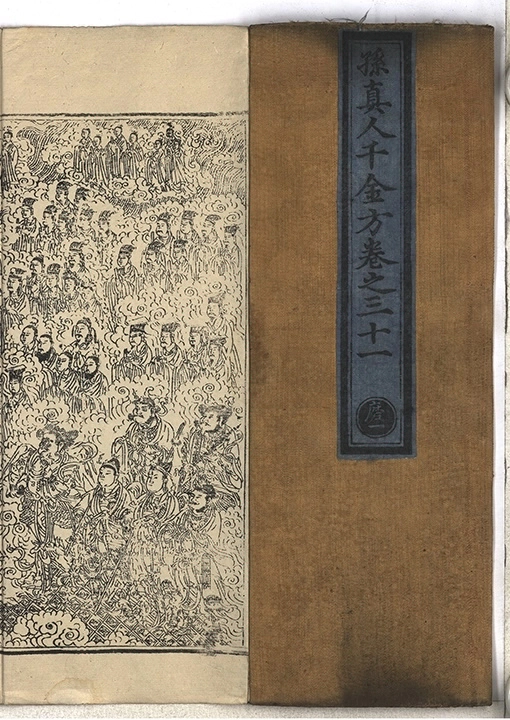 孫真人千金方卷之三十一